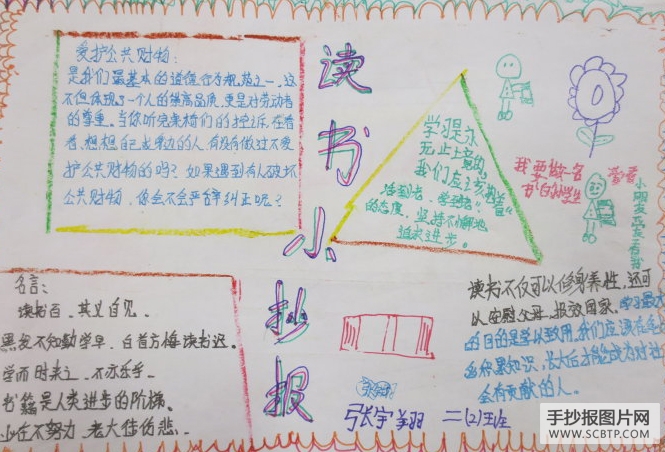 读书小抄报
爱护公共财物:
是我们最基本的道德行为规范之一,这
不但体现了一个人的崇高品质,更是对劳动者
的尊重。当你听完桌椅们的控诉,在看
看,想想自己或周边的人,有没有做过不爱
护公共财物的吗?如果遇到有人破坏
公共财物,你会不会严肃纠正呢?
学习是永
无止上境的,
我们应该抱着
活到老、学到老"
的态度,坚持不懈地
追求进步。
我要做一名
书
学生
爱看
小朋友
名言:
读书百,其义自见。
黑发不知勤学早,白首方悔读书迟。
学而时来之,不亦乐乎。
书籍是人类进步的阶梯。
少在不努力,老大徒伤悲。
读书不仅可以修身养性,还可
以安慰父母,报效国家。学习最大
的目的是学以致用,我们应该在
累知识,长大后才能成为对社
会有贡献的人。
张宇翔 二(2)班
手抄报图片网
WWW.SCBTP.COM